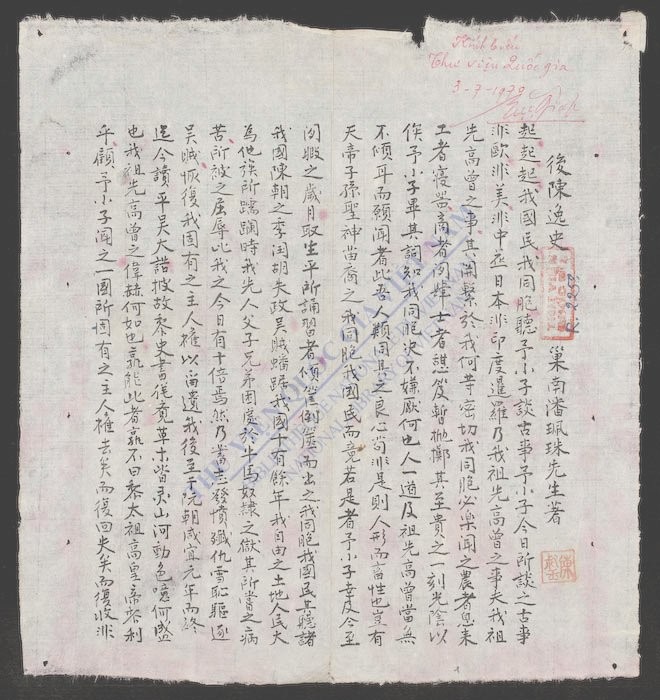 Kính biếu
Thư viện Quốc gia
3-7-1979
後陳逸史 巢南潘珮珠先生著
起起起我國民我同胞聽予小子談古事予小子今日所談之古事
非歐非美非中亦非日本非印度暹羅乃我祖先高曾之事夫我祖
先高曾之事其關繫於我何等密切我同胞必樂聞之農者息耒
工者寢器商者士者暫擲其至貴之一刻光陰以
俟予小子畢其詞知我同胞決不嫌厭何也人一道及祖先高曾當無
不傾耳而願聞者此吾人類同具之良心苟非是則人形而畜性也豈有
天帝子孫聖神苗裔之我同胞我國民而竟若是者予小子幸及今至
閒暇之歲月取生平所誦習者傾筐倒篋而出之我同胞我國民其聽諸
我國陳朝之季閏胡失政吳賊蟠踞我國十有餘年我自由之土地人民大
為他族所蹂躪時我先人父子兄弟困處於牛馬奴隸之獄其所嘗之病
苦所被之屈辱比我之今日有十倍焉然乃蓄志發憤殲仇雪恥驅逐
吳賊恢復我固有之主人權以留遺我後至于阮朝咸宜元年而終
迄今讀平吳大誥披故黎史書猶覺草木皆灵山河動色噫何盛
也我祖先高曾之偉赫何如也孰能此者孰不曰黎太祖高皇帝黎利
乎顧予小子聞之一國所固有之主人權去矣而復回失矣而復收非
THƯ VIỆN QUỐC GIA VIỆT NAM